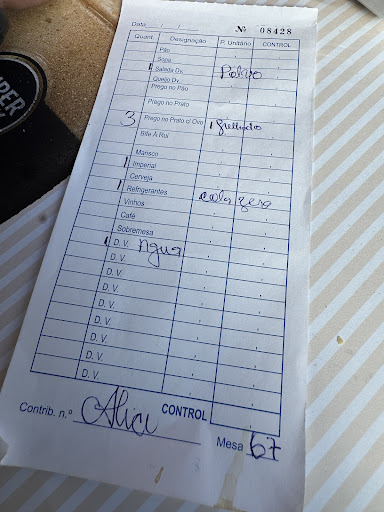 Data
Nº 08428
Quant. Designação P. Unitário CONTROL
Pão
Sopa
1 Salada Dv. Polvo
Queijo Dv.
Prego no Pão
Prego no Prato
3 Prego no Prato c/ Ovo 1 grelhado
Bife À Rui
Marisco
1 Imperial
Cerveja
1 Refrigerantes cola zero
Vinhos
Café
Sobremesa
1 D. V. Agua
D. V.
D. V.
D. V.
D. V.
D. V.
D. V.
D. V.
D. V.
D. V.
CONTROL
Contrib. n.º Alice Mesa 67